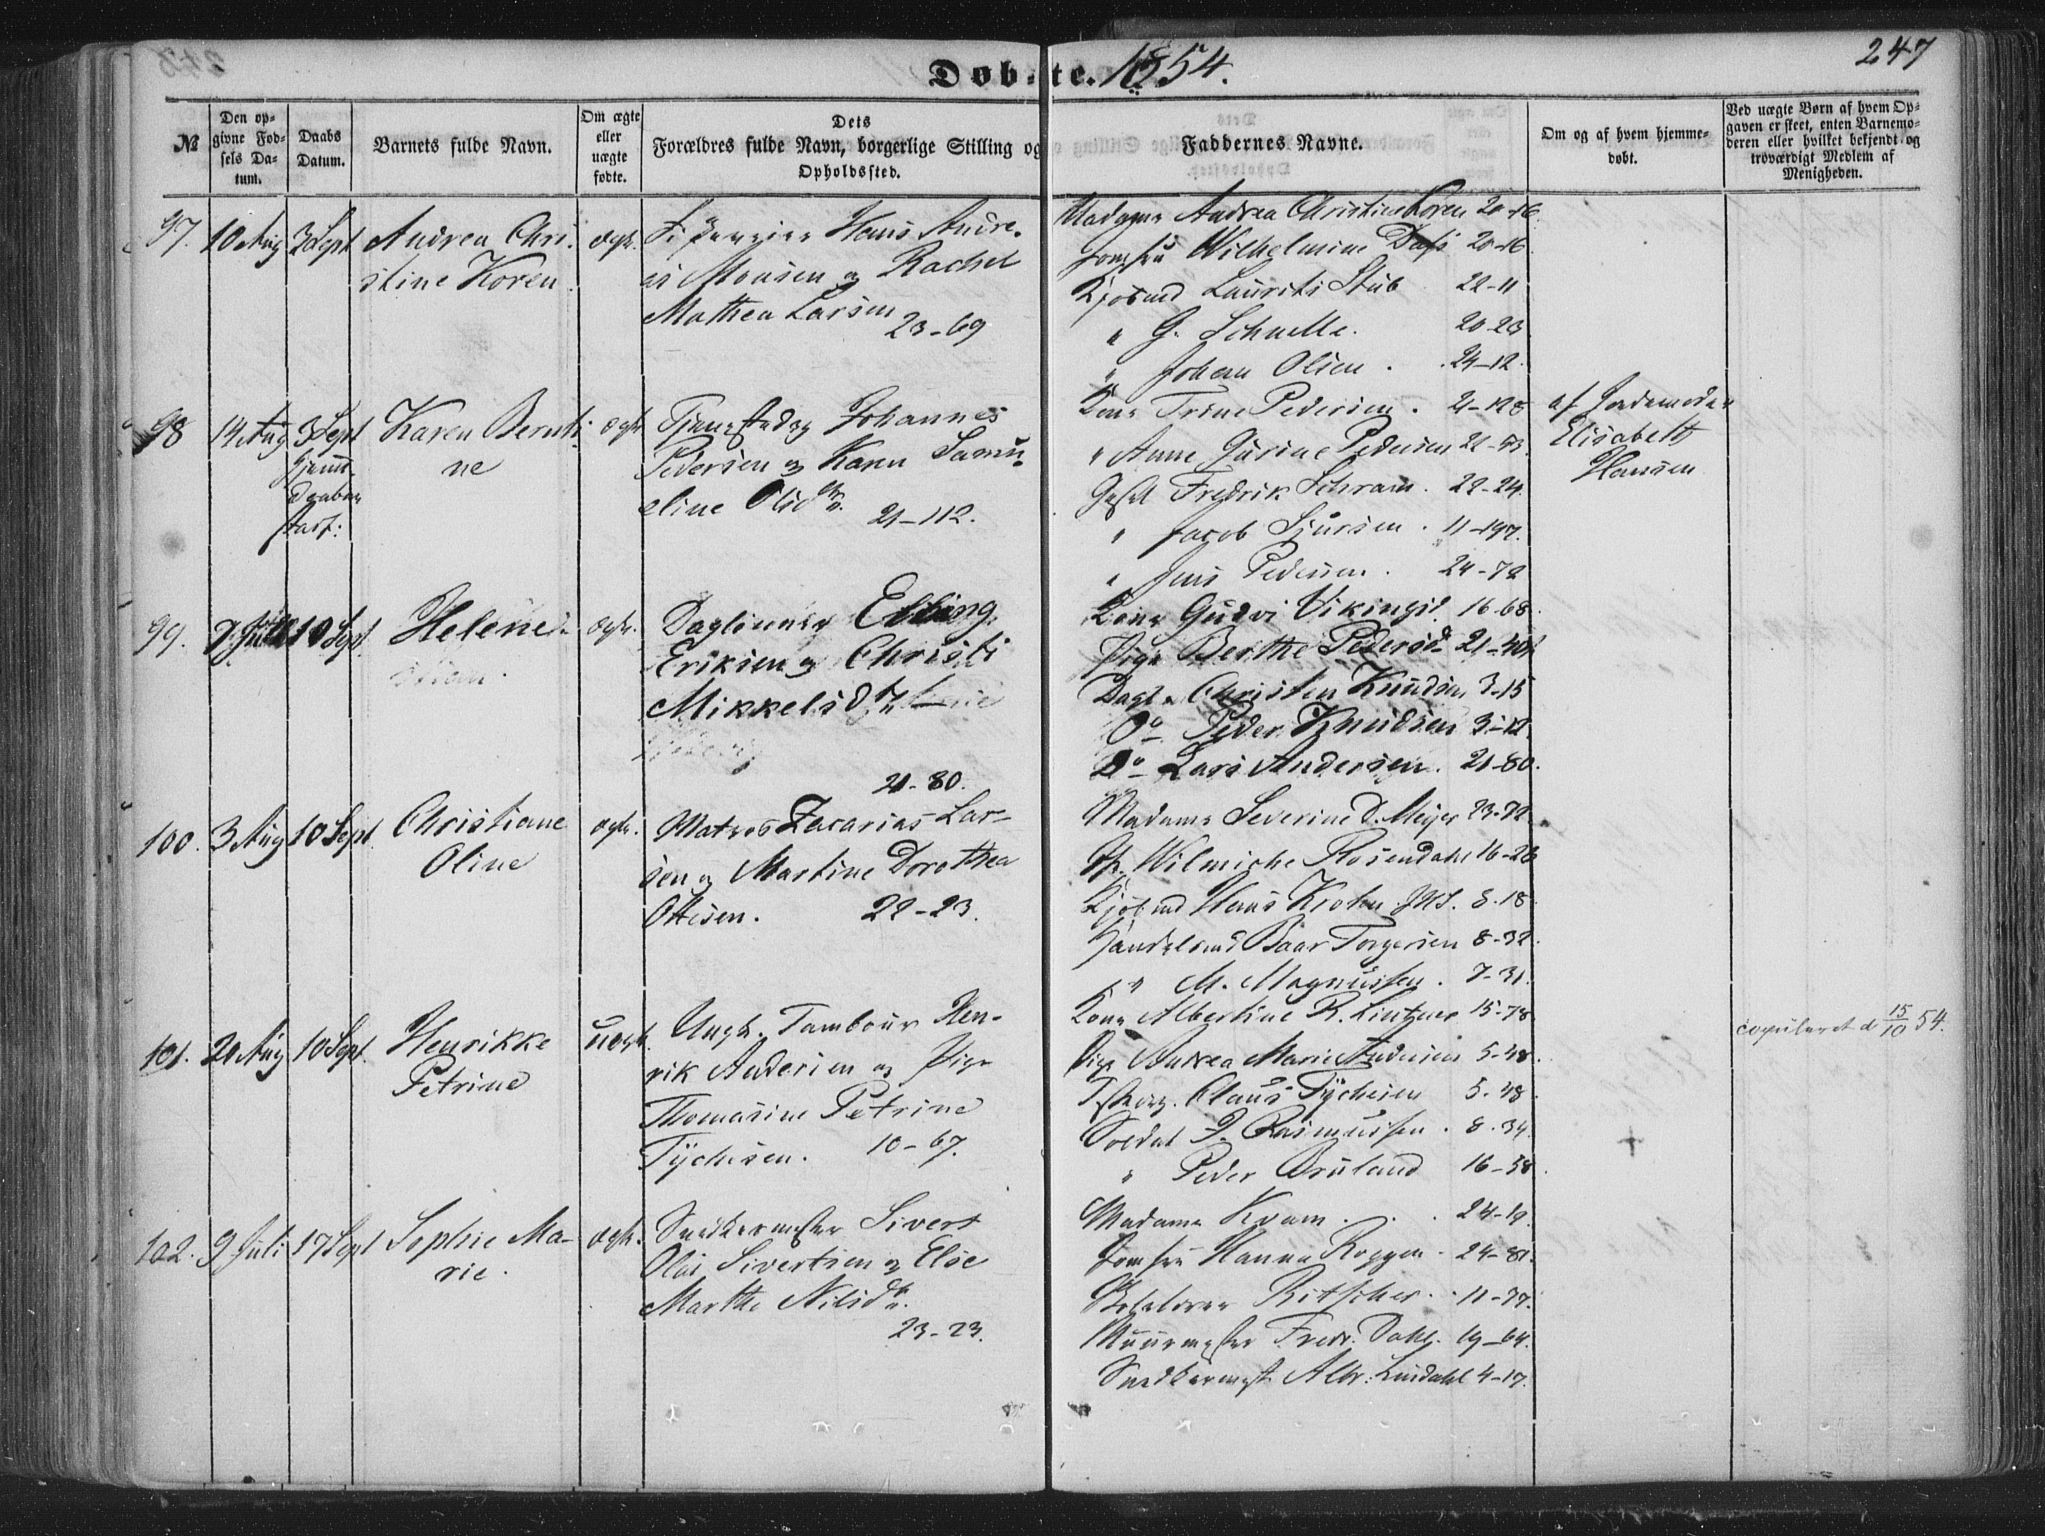 247
Døbte. 1854.
№
Den op-
givne Fød-
sels Da-
tum.
Daabs
Datum.
Barnets fulde Navn.
Om ægte
eller
uægte
fødte.
Dets
Forældres fulde Navn, borgerlige Stilling og
Opholdssted.
Faddernes Navne.
Om og af hvem hjemme-
døbt.
Ved uægte Børn af hvem Op-
gaven er skeet, enten Barnemo-
deren eller hvilket bekjendt og
troværdigt Medlem af
Menigheden.
97. 10 Aug 3 Sept Andrea Chri-
stine Koren
ægte. Hans Andre-
as Monsen og Rachel
Mathea Larsen
23-69
Madame Andrea Christine Koren 20-16.
Jomfru Wilhelmine 20-16
Kjøbmd Laurits Stub 22-11
" G. 20-23
" Johan Olsen . 24-12.
98 14 Aug 3 Sept
hjemme-
Daaben
Karen Bernti-
ne
ægte Johannes
Pedersen og Karen Samu-
eline Olsdtr.
21-112.
Kone Trine Pedersen . 21-128
" Anne Gurine Pedersen
Fredrik Schram . 22-24.
" Jacob Sjursen . 11-197.
" Jens Pedersen . 24-72
af Jordemoder
Elisabeth
Hansen
99. 10 Sept. Helene
ægte. Elling
Eriksen og Christi
Mikkelsdtr.
21-80.
Kone Gudvi Vikingsd. 16-68.
Pige Berthe Pedersd.
Christen Knudsen 3-15
Do Peder Knudsen 3-12.
Do Lars Andersen. 21-80.
100. 3 Aug 10 Sept Christiane
Oline
ægte. Matros Zacarias Lar-
sen og Martine Dorothea
Ottesen. 22-23.
Madame Severine D. Meyer 23-72.
Wilmiche Rosendahl
Kjøbmd Hans Krohn 8-18.
Handelsmd Baar Torgersen 8-32.
" M. Magnussen . 7-31.
101. 10 Sept. Henrikke
Petrine
uægte. Ungk. Tambour Hen-
rik Andersen og Pige
Thomasine Petrine
Tychesen. 10-67.
Kone Albertine R. Lintzner 15-78.
Pige Andrea Marie Andersen 5-48.
Claus Tychesen 5.48.
Soldat P. Rasmussen . 8.34.
" Peder Bruland 16-58.
copuleret d 15/10 54.
102. 9 Juli 17 Sept Sophie Ma-
rie.
ægte. Snedkermester Sivert
Olai Sivertsen og Else
Marthe Nilsdtr.
23-23.
Madame Kvam . . . 24-19.
Jomfru Hanna Roggen . 24-81.
Ritscher . 11-37.
Muurmester Fredr. Dahl. 19-64.
Snedkermest Albr. Lindahl 4-17.